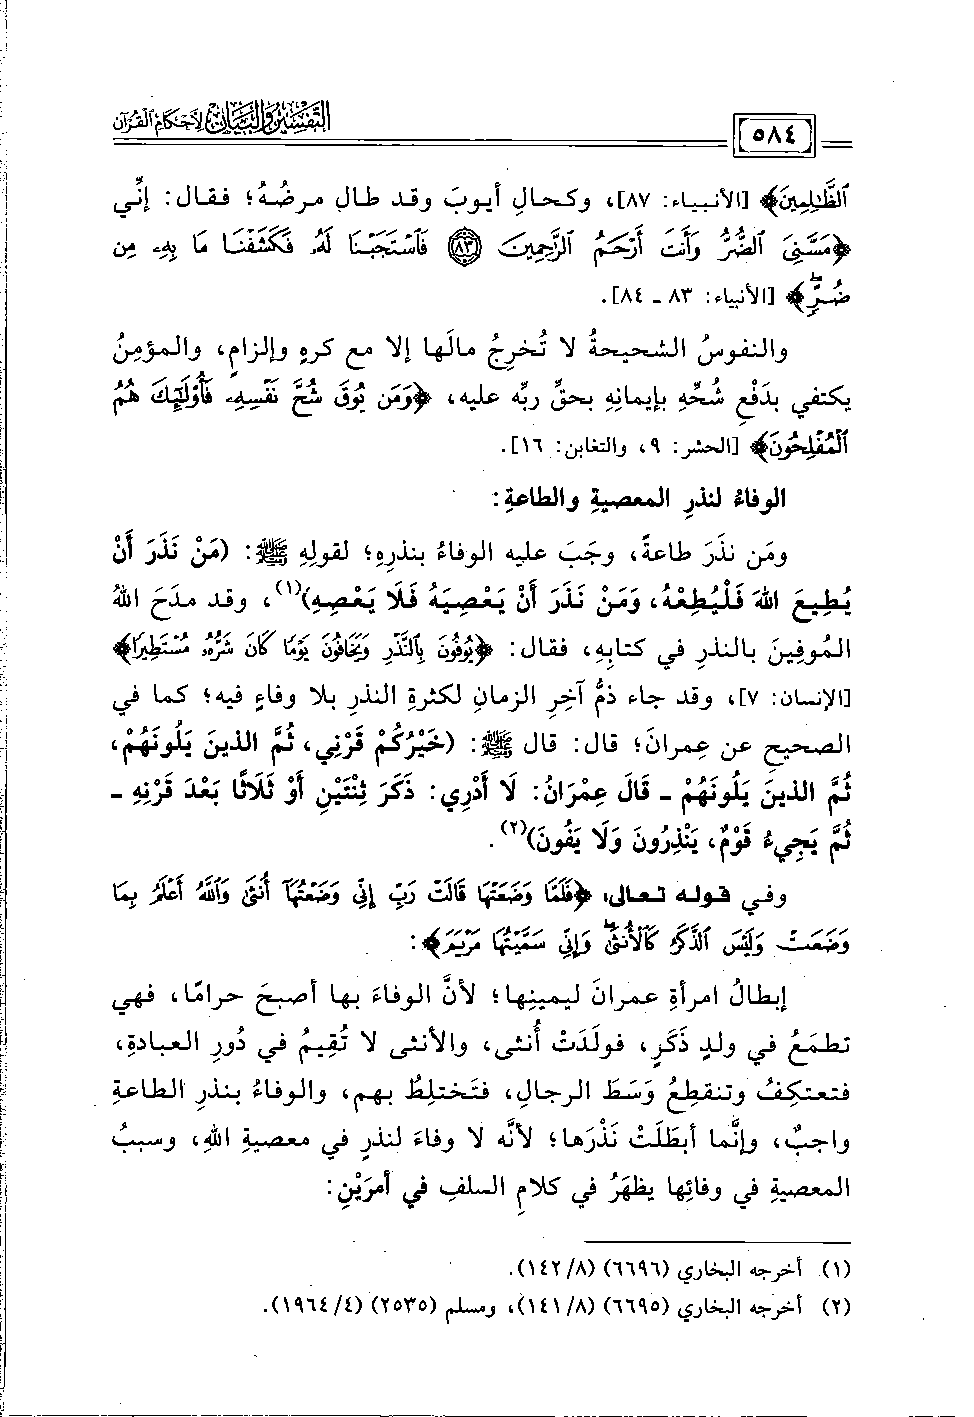 التفسير والبيان لأحكام القرآن
٥٨٤
ٱلظَّٰلِمِينَ﴾ [الأنبياء: ٨٧]، وكحالِ أيوبَ وقد طال مرضُهُ؛ فقال: إنِّي
﴿مَسَّنِيَ ٱلضُّرُّ وَأَنتَ أَرْحَمُ ٱلرَّٰحِمِينَ ۝٨٣ فَٱسْتَجَبْنَا لَهُۥ فَكَشَفْنَا مَا بِهِۦ مِن
ضُرٍّۖ﴾ [الأنبياء: ٨٣ ـ ٨٤].
والنفوسُ الشحيحةُ لا تُخرِجُ مالَها إلا مع كرهٍ وإلزامٍ، والمؤمِنُ
يكتفي بدَفْعِ شُحِّهِ بإيمانِهِ بحقِّ ربِّه عليه، ﴿وَمَن يُوقَ شُحَّ نَفْسِهِۦ فَأُوْلَٰٓئِكَ هُمُ
ٱلْمُفْلِحُونَ﴾ [الحشر: ٩، والتغابن: ١٦].
الوفاءُ لنذرِ المعصيةِ والطاعةِ:
ومَن نذَرَ طاعةً، وجَبَ عليه الوفاءُ بنذرِهِ؛ لقولِهِ ﷺ: (مَنْ نَذَرَ أَنْ
يُطِيعَ اللهَ فَلْيُطِعْهُ، وَمَنْ نَذَرَ أَنْ يَعْصِيَهُ فَلَا يَعْصِهِ)(١)، وقد مدَحَ اللهُ
المُوفِينَ بالنذرِ في كتابِهِ، فقال: ﴿يُوفُونَ بِٱلنَّذْرِ وَيَخَافُونَ يَوْمًا كَانَ شَرُّهُۥ مُسْتَطِيرًا﴾
[الإنسان: ٧]، وقد جاء ذمُّ آخِرِ الزمانِ لكثرةِ النذرِ بلا وفاءٍ فيه؛ كما في
الصحيحِ عن عِمرانَ؛ قال: قال ﷺ: (خَيْرُكُمْ قَرْنِي، ثُمَّ الذينَ يَلُونَهُمْ،
ثُمَّ الذينَ يَلُونَهُمْ ـ قَالَ عِمْرَانُ: لَا أَدْرِي: ذَكَرَ ثِنْتَيْنِ أَوْ ثَلَاثًا بَعْدَ قَرْنِهِ ـ
ثُمَّ يَجِيءُ قَوْمٌ، يَنْذِرُونَ وَلَا يَفُونَ)(٢).
وفي قوله تعالى: ﴿فَلَمَّا وَضَعَتْهَا قَالَتْ رَبِّ إِنِّي وَضَعْتُهَآ أُنثَىٰ وَٱللَّهُ أَعْلَمُ بِمَا
وَضَعَتْ وَلَيْسَ ٱلذَّكَرُ كَٱلْأُنثَىٰۖ وَإِنِّي سَمَّيْتُهَا مَرْيَمَ﴾:
إبطالُ امرأةِ عمرانَ ليمينِها؛ لأنَّ الوفاءَ بها أصبحَ حرامًا، فهي
تطمَعُ في ولدٍ ذَكَرٍ، فولَدَتْ أُنثى، والأنثى لا تُقِيمُ في دُورِ العبادةِ،
فتعتكِفُ وتنقطِعُ وَسَطَ الرجالِ، فتَختلِطُ بهم، والوفاءُ بنذرِ الطاعةِ
واجبٌ، وإنَّما أبطَلَتْ نَذْرَها؛ لأنَّه لا وفاءَ لنذرٍ في معصيةِ اللهِ، وسببُ
المعصيةِ في وفائِها يظهَرُ في كلامِ السلفِ في أمرَيْنِ:
(١) أخرجه البخاري (٦٦٩٦) (٨/ ١٤٢).
(٢) أخرجه البخاري (٦٦٩٥) (٨/ ١٤١)، ومسلم (٢٥٣٥) (٤/ ١٩٦٤).